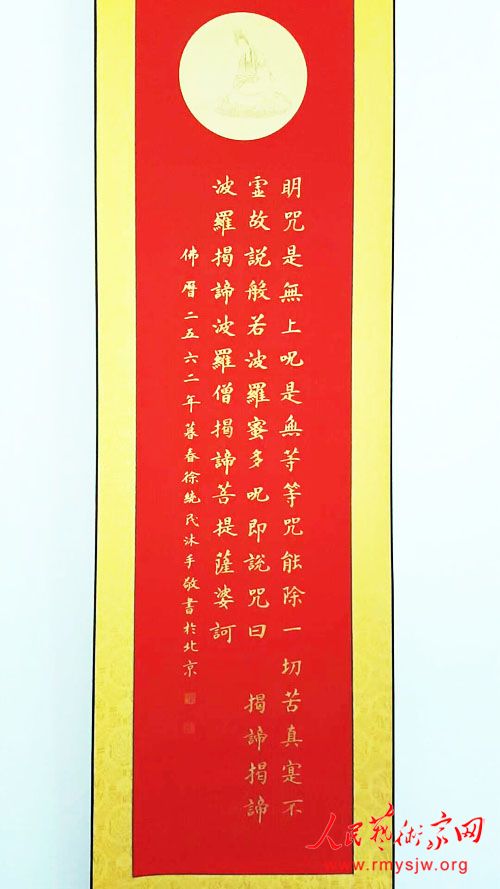 明咒是無上呪是無等等咒能除一切苦真寔不
虛故説般若波羅蜜多呪即說咒曰 揭諦揭諦
波羅揭諦波羅僧揭諦菩提薩婆訶
佛曆二五六二年暮春徐純民沐手敬書於北京
人民藝術家网
www.rmysjw.org